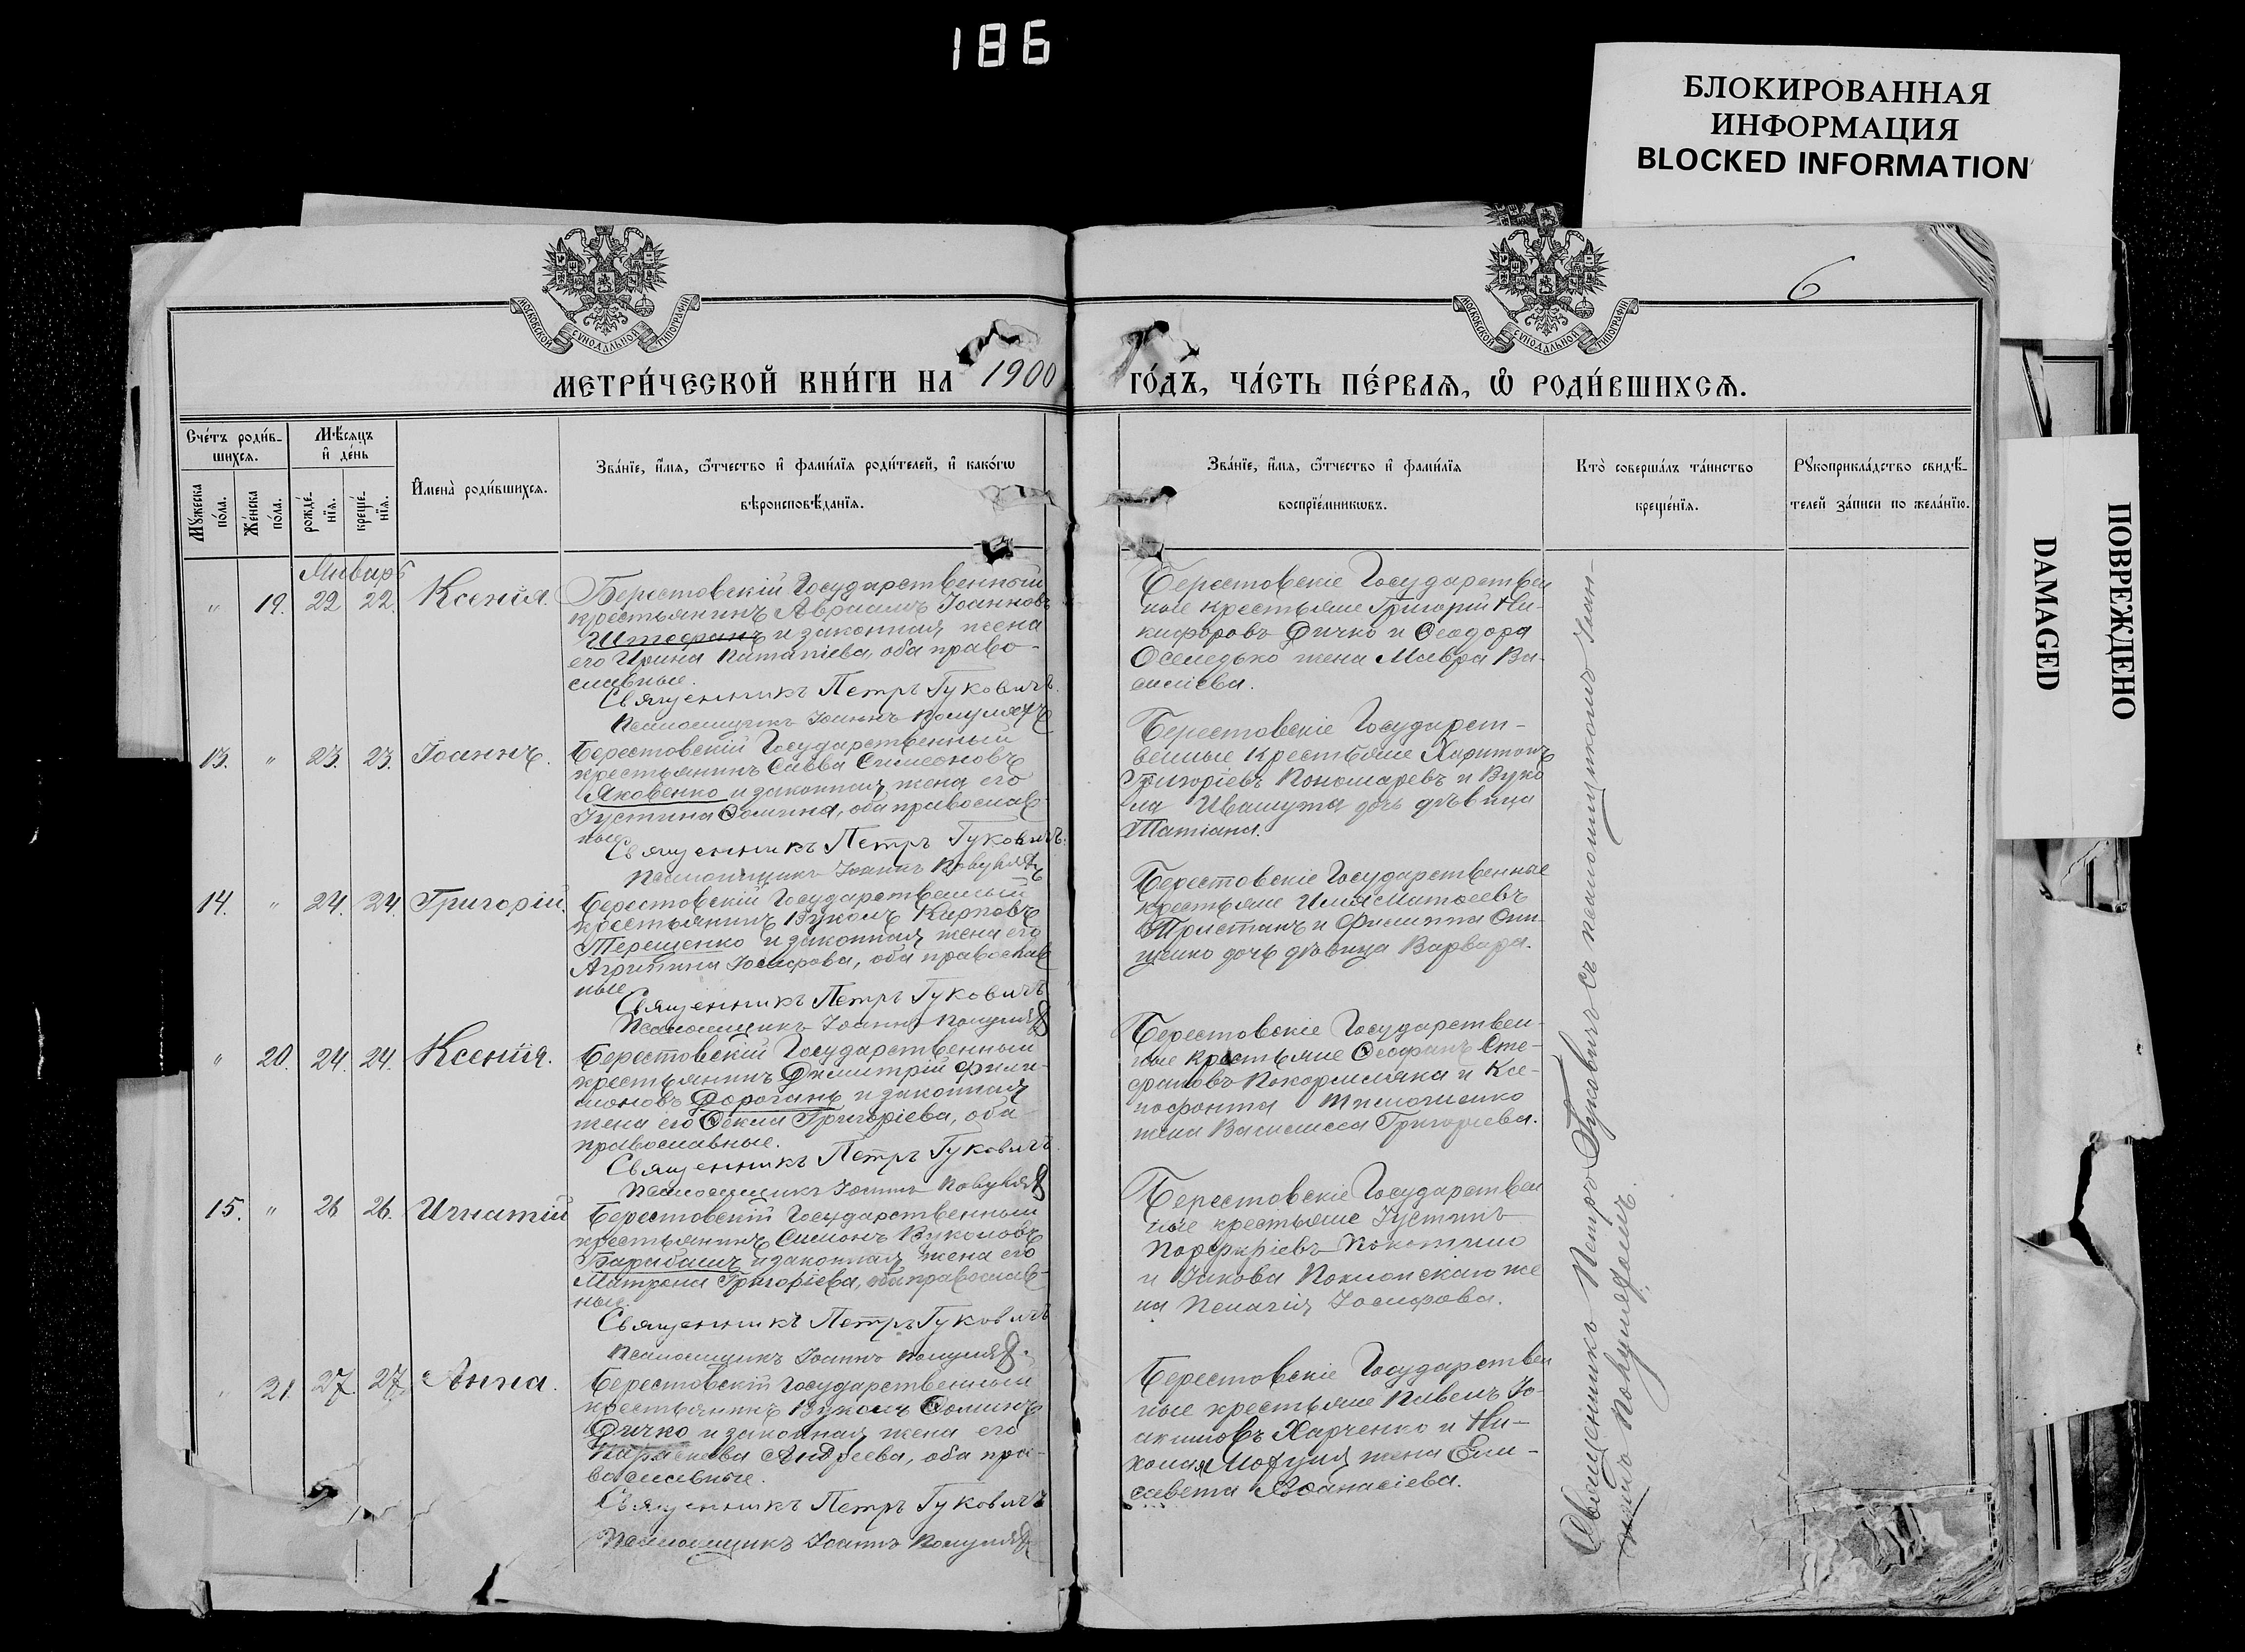 186
БЛОКИРОВАННАЯ
ИНФОРМАЦИЯ
BLOCKED INFORMATION
ПОВРЕЖДЕНО
DAMAGED
6
МОСКОВСКОЙ СУНОДАЛЬНОЙ ТИПОГРАФІИ
МОСКОВСКОЙ СУНОДАЛЬНОЙ ТИПОГРАФІИ
МЕТРИ́ЧЕСКОЙ КНИ́ГИ НА 1900 ГО́ДЪ, ЧА́СТЬ ПЕ́РВАѦ, Ѽ РОДИ́ВШИХСѦ.
Сче́тъ роди́в-
шихсѧ.
Мꙋжеска по́ла.
Же́нска по́ла.
Мѣ́сѧцъ
и҆ де́нь
рожде́-нїѧ.
креще́-нїѧ.
И҆мена̀ роди́вшихсѧ.
Зва́нїе, и҆́мѧ, ѻ҆́тчество и҆ фами́лїѧ роди́телей, и҆ како́гѡ
вѣроисповѣ́данїѧ.
Зва́нїе, и҆́мѧ, ѻ҆́тчество и҆ фами́лїѧ
воспрїе́мникѡвъ.
Кто̀ соверша́лъ та́инство
креще́нїѧ.
Рꙋкоприкла́дство свидѣ́-
телей за́писи по жела́нїю.
Январь
" 19. 22 22. Ксенія.
Берестовскій Государственный
крестьянинъ Авраамъ Іоанновъ
Штефанъ и законная жена
его Ирина Потапіева, оба право-
славные.
Священникъ Петръ Гуковичъ.
Псаломщикъ Іоаннъ
Берестовскіе Государствен
ные крестьяне Григорій Ни-
кифоровъ Дичко и Ѳеодора
Оселедько жена Мавра Ва-
силіева.
13. " 23. 23. Іоаннъ.
Берестовскій Государственный
крестьянинъ Савва Симеоновъ
Яковенко и законная жена его
Іустина Ѳомина, оба православ-
ные.
Священникъ Петръ Гуковичъ.
Псаломщикъ Іоаннъ
Берестовскіе Государст-
венные крестьяне Харитонъ
Григоріевъ Пономаревъ и Вуко
ла Ивашута дочь дѣвица
Татіана.
14. " 24. 24. Григорій.
Берестовскій Государственный
крестьянинъ Вуколъ Карповъ
Терещенко и законная жена его
Агрипина Іосифова, оба православ
ные.
Священникъ Петръ Гуковичъ
Псаломщикъ Іоаннъ
Берестовскіе Государственные
крестьяне Илія Матѳеевъ
Тристанъ и Филиппа Они-
щенко дочь дѣвица Варвара.
" 20. 24. 24. Ксенія.
Берестовскій Государственный
крестьянинъ Димитрій Фили-
моновъ Дороганъ и законная
жена его Ѳекла Григоріева, оба
православные.
Священникъ Петръ Гуковичъ
Псаломщикъ Іоаннъ
Берестовскіе Государствен-
ные крестьяне Ѳеофанъ Сте-
фановъ Покормляка и Ксе-
нофонта Тимошенко
жена Василисса Григоріева.
15. " 26 26. Игнатій
Берестовскій Государственный
крестьянинъ Симонъ Вуколовъ
Барабашъ и законная жена его
Матрона Григоріева, оба православ-
ные.
Священникъ Петръ Гуковичъ
Псаломщикъ Іоаннъ
Берестовскіе Государствен
ные крестьяне Іустинъ
Порфиріевъ Покотило
и Іакова же
на Пелагія Іосифова.
21 27. 27. Анна.
Берестовскій Государственный
крестьянинъ Вуколъ Ѳоминъ
Дичко и законная жена его
Параскева Андреева, оба пра-
вославные.
Священникъ Петръ Гуковичъ
Псаломщикъ Іоаннъ
Берестовскіе Государствен
ные крестьяне Павелъ Іо-
акимовъ Харченко и Ни-
колая жена Ели-
савета Аѳанасіева.
Священникъ Петръ Гуковичъ съ псаломщикомъ Іоан-